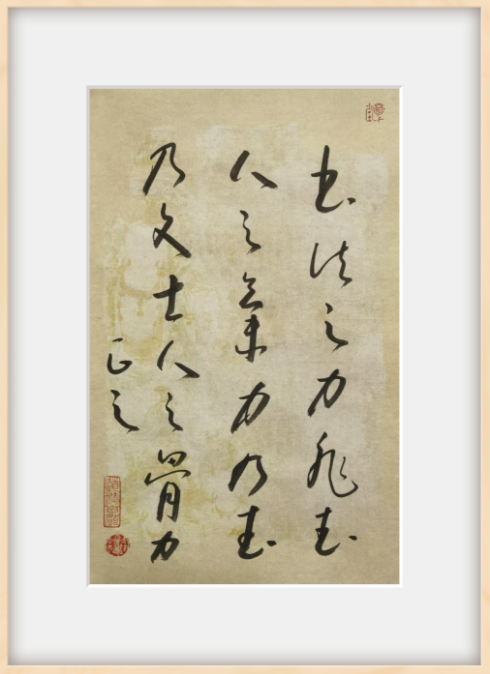 书法之力非武
人之氣力乃武
乃文士人之骨力
正之